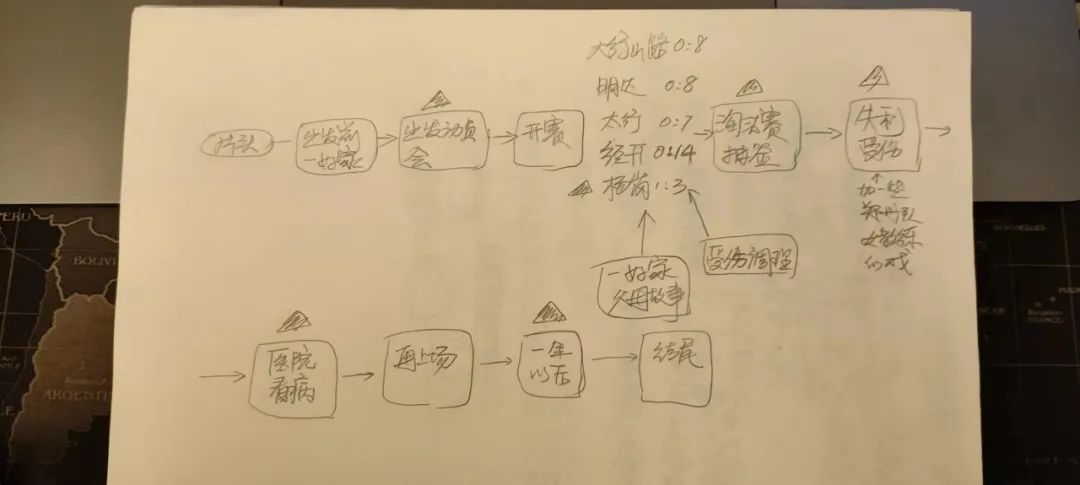 片头
出发前
一好家
出发动员
会
开赛
大行山能 0:8
明达 0:8
太行 0:7
经开 0:14
杨岗 1:3
淘汰赛
抽签
失利
受伤
加一些
女教练
的戏
一好家
父母故事
受伤调理
医院
看病
再上场
一年
以后
结尾
PERU
BOLIVI
ARGENTI